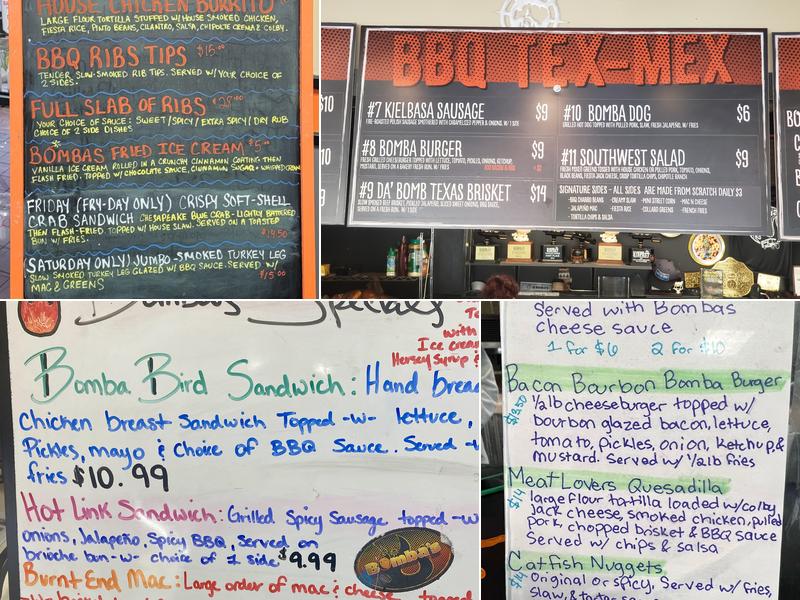 HOUSE CHICKEN BURRITO
LARGE FLOUR TORTILLA STUFFED W/ HOUSE SMOKED CHICKEN,
FIESTA RICE, PINTO BEANS, CILANTRO, SALSA, CHIPOLTE CREMA & COLBY.
BBQ RIBS TIPS $15.00
TENDER, SLOW-SMOKED RIB TIPS. SERVED W/ YOUR CHOICE OF
2 SIDES.
FULL SLAB OF RIBS
YOUR CHOICE OF SAUCE: SWEET / SPICY / EXTRA SPICY / DRY RUB
CHOICE OF 2 SIDE DISHES
BOMBAS FRIED ICE CREAM
VANILLA ICE CREAM ROLLED IN A CRUNCHY CINNAMON COATING THEN
FLASH FRIED. TOPPED W/ CHOCOLATE SAUCE, CINNAMON SUGAR + WHIPPED CREAM
FRIDAY (FRY-DAY ONLY) CRISPY SOFT-SHELL
CRAB SANDWICH CHESAPEAKE BLUE CRAB-LIGHTLY BATTERED
THEN FLASH-FRIED. TOPPED W/ HOUSE SLAW. SERVED ON A TOASTED
BUN W/ FRIES. $14.50
(SATURDAY ONLY) JUMBO-SMOKED TURKEY LEG
SLOW SMOKED TURKEY LEG GLAZED W/ BBQ SAUCE. SERVED W/
MAC & GREENS $15.00
$10
BBQ TEX-MEX
#7 KIELBASA SAUSAGE $9
FIRE-ROASTED POLISH SAUSAGE SMOTHERED WITH CARAMELIZED PEPPER & ONIONS. W/ 1 SIDE
#8 BOMBA BURGER $9
FRESH GRILLED CHEESEBURGER TOPPED WITH LETTUCE, TOMATO, PICKLES, ONIONS, KETCHUP,
MUSTARD. SERVED ON A BAKERY FRESH BUN. W/ FRIES
#9 DA' BOMB TEXAS BRISKET $14
SLOW SMOKED BEEF BRISKET, PICKLED JALAPENO, SLICED SWEET ONIONS, BBQ SAUCE,
SERVED ON A FRESH BUN. W/ 1 SIDE
#10 BOMBA DOG $6
GRILLED HOT DOG TOPPED WITH PULLED PORK, SLAW, FRESH JALAPEÑO, W/ FRIES
#11 SOUTHWEST SALAD $9
FRESH MIXED GREENS TOSSED WITH HOUSE CHICKEN OR PULLED PORK, TOMATO, ONIONS,
BLACK BEANS, FRESH JACK CHEESE, CRISP TORTILLA CHIPS, CHIPOTLE RANCH
SIGNATURE SIDES - ALL SIDES ARE MADE FROM SCRATCH DAILY. $3
-BBQ CHARRO BEANS -CREAMY SLAW -MINI STREET CORN -MAC N CHEESE
-JALAPENO MAC -FIESTA RICE -COLLARD GREENS -FRENCH FRIES
-TORTILLA CHIPS & SALSA
Bomba's Specials
with
Ice cream
Hersey Syrup &
Bomba Bird Sandwich: Hand brea
Chicken breast Sandwich Topped -w- lettuce,
Pickles, mayo & Choice of BBQ Sauce. Served -w
fries $10.99
Hot Link Sandwich: Grilled Spicy Sausage topped -w
onions, Jalapeño, Spicy BBQ, served on
brioche bun -w- choice of 1 side $9.99
Bomba's
Burnt End Mac: Large order of mac & cheese topped
served with Bombas
cheese sauce
1 for $6 2 for $10
Bacon Bourbon Bomba Burger
$13.50
1/2lb cheeseburger topped w/
bourbon glazed bacon, lettuce,
tomato, pickles, onion, ketchup, &
mustard. Served w/ 1/2lb fries
Meat Lovers Quesadilla
$14
large flour tortilla loaded w/colby
Jack cheese, smoked chicken, pulled
pork, chopped brisket & BBQ sauce
Served w/ chips & salsa
Catfish Nuggets
Original or spicy. Served w/ fries,